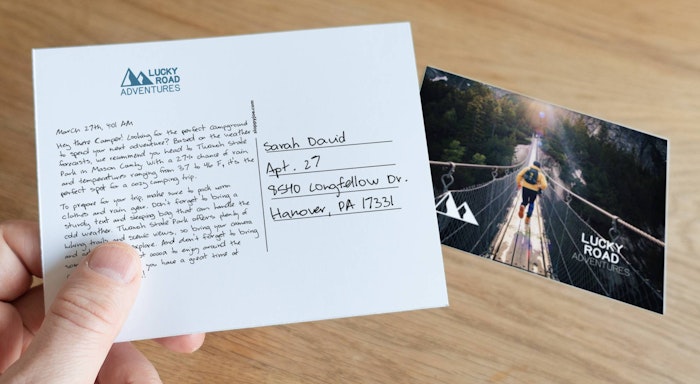 LUCKY
ROAD
ADVENTURES
March 27th, 9:01 AM
Hey there Camper! Looking for the perfect campground
to spend your next adventure? Based on the weather
forecasts, we recommend you head to Twanoh State
Park in Mason County. With a 27% chance of rain
and temperatures ranging from 37 to 46 F, it's the
perfect spot for a cozy camping trip.
To prepare for your trip make sure to pack warm
clothes and rain gear. Don't forget to bring a
sturdy tent and sleeping bag that can handle the
cold weather. Twanoh State Park offers plenty of
hiking trails and scenic views, so bring your camera
and explore. And don't forget to bring
cocoa to enjoy around the
you have a great time at
Sarah David
Apt. 27
8540 Longfellow Dr.
Hanover, PA 17331
LUCKY
ROAD
ADVENTURES